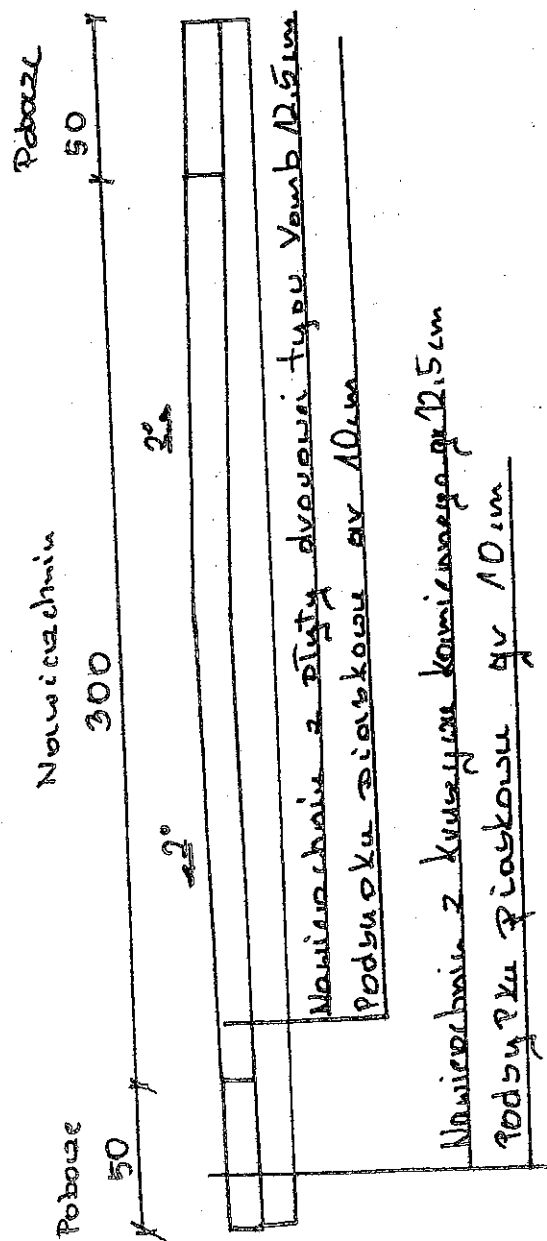 Pobocze
Nawierzchnia
Pobocze
50
300
50
2°
2°
Nawierzchnia z płyty drogowej typu Yomb 12.5cm
Podsypka piaskowa gr 10cm
Nawierzchnia z kruszywa kamiennego gr 12.5cm
Podsypka Piaskowa gr 10cm